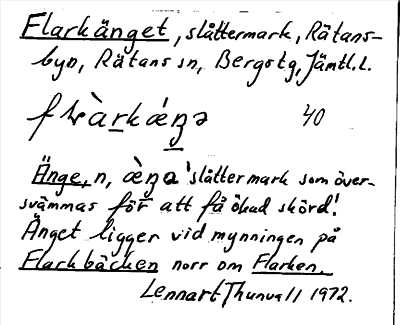 Flarkänget, slåttermark, Rätans-
byn, Rätans sn, Bergstg, Jämtl.l.
flὰrkǽŋə 40
Änge, n, ὰŋa 'slåttermark som över-
svämmas för att få ökad skörd!
Änget ligger vid mynningen på
Flarkbäcken norr om Flarken.
Lennart Thunvall 1972.